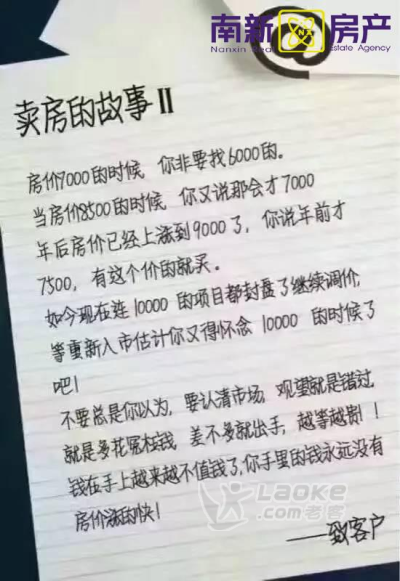 南新房产
Nanxin Real Estate Agency
卖房的故事Ⅱ
房价7000的时候 你非要找6000的。
当房价8500的时候 你又说那会才7000
年后房价已经上涨到9000了，你说年前才
7500，有这个价的就买。
如今现在连10000的项目都封盘了继续调价，
等重新入市估计你又得怀念10000的时候了
吧！
不要总是你以为，要认清市场，观望就是错过，
就是多花冤枉钱 差不多就出手，越等越贵！！
钱在手上越来越不值钱了，你手里的钱永远没有
房价涨的快！
LaoKe
.com老客
——致客户